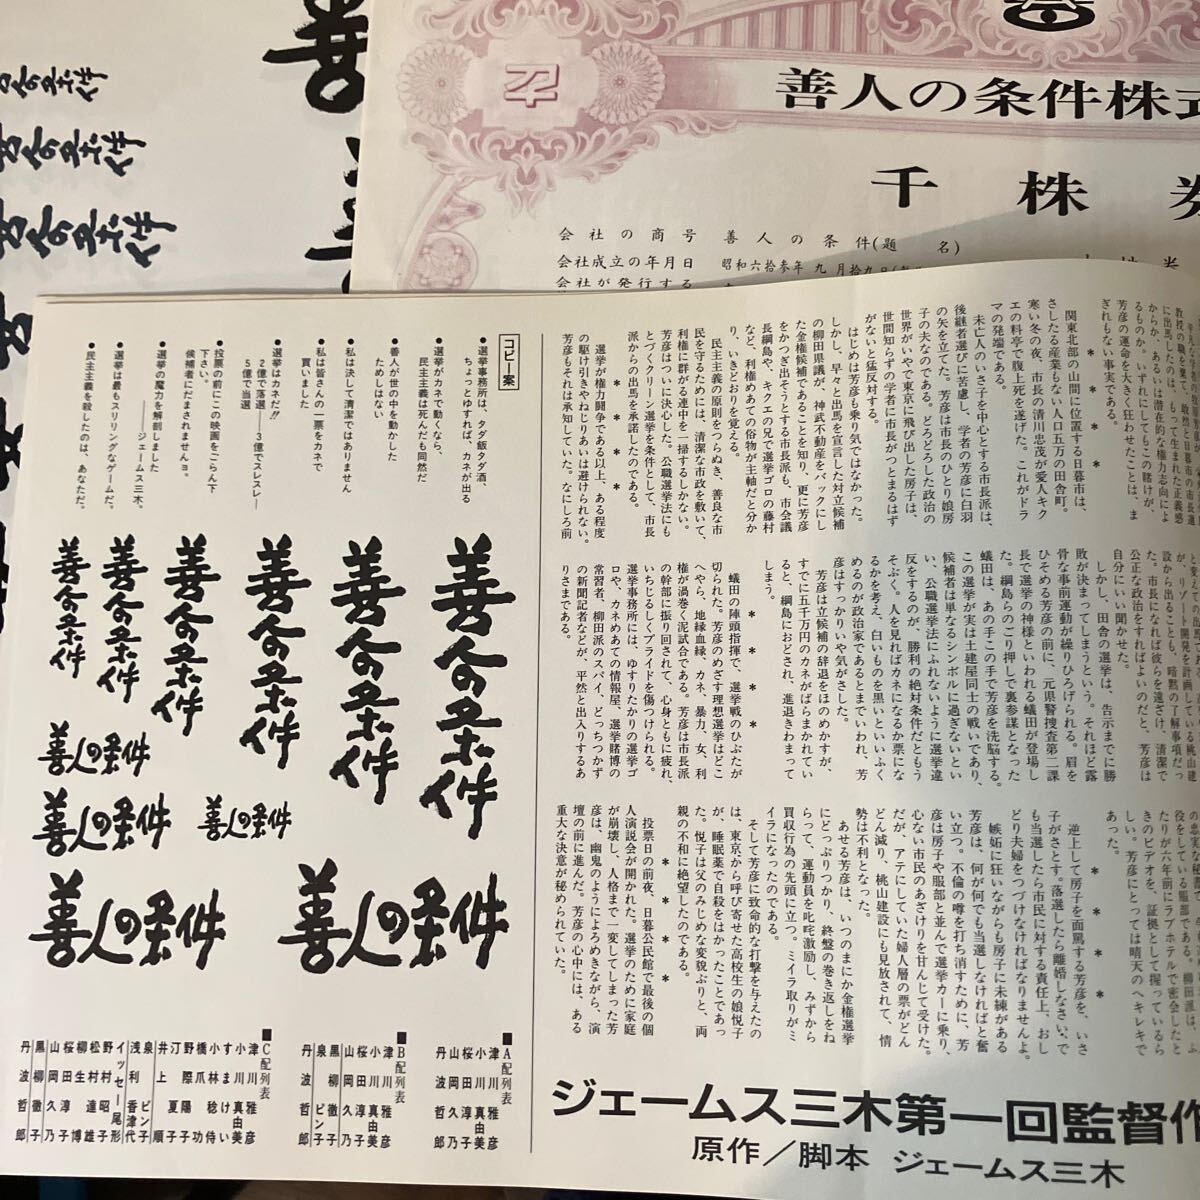 善人の条件
善人の条件
善人の条件
善人の条件株式
千株券
会社の商号 善人の条件(題名)
会社成立の年月日 昭和六拾参年九月拾九日
会社が発行する
教授の職を棄て、敢然と日暮市の市長選
に出馬したのは、もって生まれた正義感
からか、あるいは潜在的な権力志向によ
るものか。いずれにしてもこの賭けが、
芳彦の運命を大きく狂わせたことは、ま
ぎれもない事実である。
関東北部の山間に位置する日暮市は、
さしたる産業もない人口五万の田舎町。
寒い冬の夜、市長の清川忠茂が愛人キク
エの料亭で腹上死を遂げた。これがドラ
マの発端である。
未亡人のいさ子を中心とする市長派は、
後継者選びに苦慮し、学者の芳彦に白羽
の矢を立てた。芳彦は市長のひとり娘房
子の夫なのである。どろどろした政治の
世界がいやで東京に飛び出した房子は、
世間知らずの学者に市長がつとまるはず
がないと猛反対する。
はじめは芳彦も乗り気ではなかった。
しかし、早々と出馬を宣言した対立候補
の柳田県議が、神武不動産をバックにし
た金権候補であることを知り、更に芳彦
をかつぎ出そうとする市長派も、市会議
長綱島や、キクエの兄で選挙ゴロの藤村
など、利権めあての俗物が主軸だと分か
り、いきどおりを覚える。
民主主義の原則をつらぬき、善良な市
民を守るためには、清潔な市政を敷いて、
利権に群がる連中を一掃するしかない。
芳彦はついに決心した。公職選挙法にも
とづくクリーン選挙を条件として、市長
派からの出馬を承諾したのである。
* * * *
選挙が権力闘争である以上、ある程度
の駆け引きやねじりあいは避けられない。
芳彦もそれは承知していた。なにしろ前
を棄てて出
た、リゾート開発を計画している桃山建
設から出ることも、暗黙の了解事項だっ
た。市長になれば彼らを遠ざけ、清潔で
公正な政治をすればよいのだと、芳彦は
自分にいい聞かせた。
しかし、田舎の選挙は、告示までに勝
敗が決まってしまうという。それほど露
骨な事前運動が繰りひろげられる。眉を
ひそめる芳彦の前に、元県警捜査第二課
長で選挙の神様といわれる蟻田が登場し
た。綱島らのごり押しで裏参謀となった
蟻田は、あの手この手で芳彦を洗脳する。
この選挙が実は土建屋同士の戦いであり、
候補者は単なるシンボルに過ぎないとい
い、公職選挙法にふれないように選挙違
反をするのが、勝利の絶対条件だともう
そぶく。人を見ればカネになるか票にな
るかを考え、白いものを黒いといいふく
めるのが政治家であるとまでいわれ、芳
彦はすっかりいや気がさした。
芳彦は立候補の辞退をほのめかすが、
すでに五千万円のカネがばらまかれてい
ると、綱島におどされ、進退きわまって
しまう。
* * * *
蟻田の陣頭指揮で、選挙戦のひぶたが
切られた。芳彦のめざす理想選挙はどこ
へやら、地縁血縁、カネ、暴力、女、利
権が渦巻く泥試合である。芳彦は市長派
の幹部に振り回されて、心身ともに疲れ、
いちじるしくプライドを傷つけられる。
選挙事務所には、ゆすりたかりの選挙ゴ
ロや、カネめあての情報屋、選挙賭博の
常習者、柳田派のスパイ、どっちつかず
の新聞記者などが、平然と出入りするあ
りさまである。
の忠実な秘書
役をしている服部である。柳田派は、ふ
たりが六年前にラブホテルで密会したと
きのビデオを、証拠として握っているら
しい。芳彦にとっては晴天のヘキレキで
あった。
* * * *
逆上して房子を面罵する芳彦を、いさ
子がさとす。落選したら離婚しなさい、で
も当選したら市民に対する責任上、おし
どり夫婦をつづけなければなりませんよ。
嫉妬に狂いながらも房子に未練がある
芳彦は、何が何でも当選しなければと奮
い立つ。不倫の噂を打ち消すために、芳
彦は房子や服部と並んで選挙カーに乗り、
心ない市民のあざけりを甘んじて受けた。
だが、アテにしていた婦人層の票がどん
どん減り、桃山建設にも見放されて、情
勢は不利となった。
あせる芳彦は、いつのまにか金権選挙
にどっぷりつかり、終盤の巻き返しをね
らって、運動員を叱咤激励し、みずから
買収行為の先頭に立つ。ミイラ取りがミ
イラになったのである。
そして芳彦に致命的な打撃を与えたの
は、東京から呼び寄せた高校生の娘悦子
が、睡眠薬で自殺をはかったことであっ
た。悦子は父のみじめな変貌ぶりと、両
親の不和に絶望したのである。
* * * *
投票日の前夜、日暮公民館で最後の個
人演説会が開かれた。選挙のために家庭
が崩壊し、人格まで一変してしまった芳
彦は、幽鬼のようによろめきながら、演
壇の前に進んだ。芳彦の心中には、ある
重大な決意が秘められていた。
コピー案
●選挙事務所は、タダ飯タダ酒、
ちょっとゆすれば、カネが出る
●選挙がカネで動くなら、
民主主義は死んだも同然だ
●善人が世の中を動かした
ためしはない
●私は決して清潔ではありません
●私は皆さんの一票をカネで
買いました
●選挙はカネだ!!
2億で落選——3億でスレスレ——
5億で当選
●投票の前にこの映画をごらん下
下さい。
候補者にだまされませんョ。
——ジェームス三木、
●選挙の魔力を解剖しました
●選挙は最もスリリングなゲームだ。
●民主主義を殺したのは、あなただ。
善人の条件
善人の条件
善人の条件
善人の条件
善人の条件
善人の条件
善人の条件
善人の条件
善人の条件
善人の条件
善人の条件
■A配列表
津川雅彦
小川真由美
桜田淳子
山岡久乃
丹波哲郎
■B配列表
津川雅彦
小川真由美
桜田淳子
山岡久乃
黒柳徹子
泉ピン子
丹波哲郎
■C配列表
津川雅彦
小川真由美
すまけい
小林稔侍
橋爪功
野際陽子
汀夏子
井上順
泉ピン子
浅利香津代
イッセー尾形
野村昭子
松村達雄
柳生博
桜田淳子
山岡久乃
黒柳徹子
丹波哲郎
ジェームス三木第一回監督作
原作/脚本 ジェームス三木